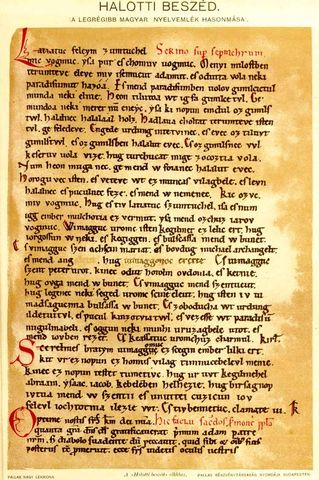 HALOTTI BESZÉD.
(A LEGRÉGIBB MAGYAR NYELVEMLÉK HASONMÁSA.)
Latiatuc feleym zumtuchel Sermo sup sepulchrum.
mic vogmuc. ysa pur es chomuv uogmuc. Menyi milostben
terumteve eleve miv isemucut adamut. es odutta vola neki
paradisumut hazoa. Es mend paradisumben uolov gimilcictul
munda neki elnie. Heon tilutoa wt ig fa gimilce tvl. Ge
mundoa neki meret num eneyc. ysa ki nopun emdul oz gimils
twl. halalnec halalaal holz. Hadlaua choltat terumteve isten
tvl. ge feledeve. Engede urdung intetvinec. es evec oz tiluvt
gimilstwl. es oz gimilsben halalut evec. Es oz gimilsnec vvl
keseruv uola vize. hug turchucat mige zocoztia vola.
Num heon muga nec. ge mend w foianec halalut evec.
Horogu vec isten. es veteve wt ez muncas vilagbele. es levn
halalnec es puculnec feze. es mend w nemenec. Kic ozvc.
miv vogmuc. Hug es tiv latiatuv szumtuchel. isa es num
igg ember mulchotia ez vermut. ysa mend ozchuz iarov
vogmuc. Wimagguc uromv isten kegilmet ez lelic ert. hug
iorgossun w neki. es kegiggen. es bulsassa mend w bunet.
Es vimagguc szen achscin mariat. es bovdug michael archangelt.
es mend ang hug uimaggonoc erette. Es uimagguc
szent peter urot. kinec odut hotolm ovdonia. es ketnie.
hug ovga mend w bunet. Es vimagguc mend szentucut.
hug legenec neki seged uromc scine eleut. hug isten iv ui
madsagucmia bulsassa w bunet. Es zoboducha wt urdung
ildetuitvl. es pucul kinzotviatwl. es vezesse wt paradisu
nugulmabeli. es oggun neki munhi uruzagbele utot. es
mend iovben rezet. Es keassatuc uromchuz charmul. kirl.
Scerelmes bratym uimagguc ez scegin ember lilki ert.
kit vr ez nopun ez homus vilag timnucebelevl mente.
kinec ez nopun testet tumetivc. hug ur uvt kegilmehel
abraam. ysaac. iacob. kebeleben helhezie. hug birsagnop
ivtva mend w szentii es unuttei cuzicun iov
felevl iochtotnia ilezie wt. Es tivbennetuc. clamate iii. K
PALLAS NAGY LEXIKONA.
A »Halotti beszéd« cikkhez.
PALLAS RÉSZVÉNYTÁRSASÁG NYOMDÁJA BUDAPESTEN.